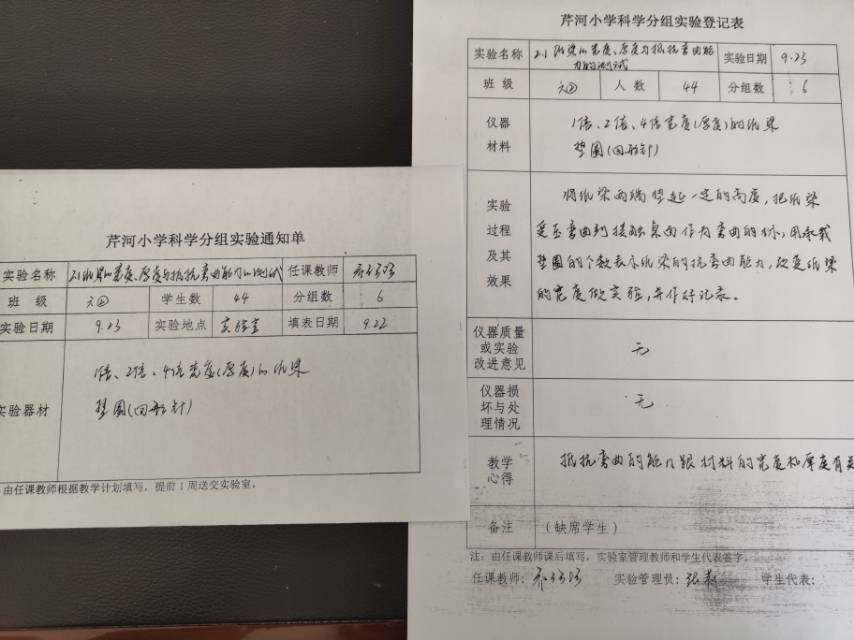 芹河小学科学分组实验通知单
实验名称 2.1纸梁的宽度、厚度与抵抗弯曲能力的测试 任课教师
班 级 六② 学生数 44 分组数 6
实验日期 9.23 实验地点 实验室 填表日期 9.22
1倍、2倍、4倍宽度(厚度)的纸梁
实验器材 垫圈(回形针)
由任课教师根据教学计划填写，提前1周送交实验室。
芹河小学科学分组实验登记表
实验名称 2.1纸梁的宽度、厚度与抵抗弯曲能 实验日期 9.23
力的测试
班 级 六② 人 数 44 分组数 6
仪器 1倍、2倍、4倍宽度(厚度)的纸梁
材料 垫圈(回形针)
实验 将纸梁两端垫起一定的高度，把纸梁
过程 受压弯曲到接触桌面作为弯曲的标，用承载
及其 垫圈的个数表示纸梁的抗弯曲能力，改变纸梁
效果 的宽度做实验，并作好记录。
仪器质量
或实验 无
改进意见
仪器损
坏与处 无
理情况
教学 抵抗弯曲的能力跟材料的宽度和厚度有关
心得
备注 (缺席学生)
注：由任课教师课后填写，实验室管理教师和学生代表签字。
任课教师： 实验管理员：张 学生代表：